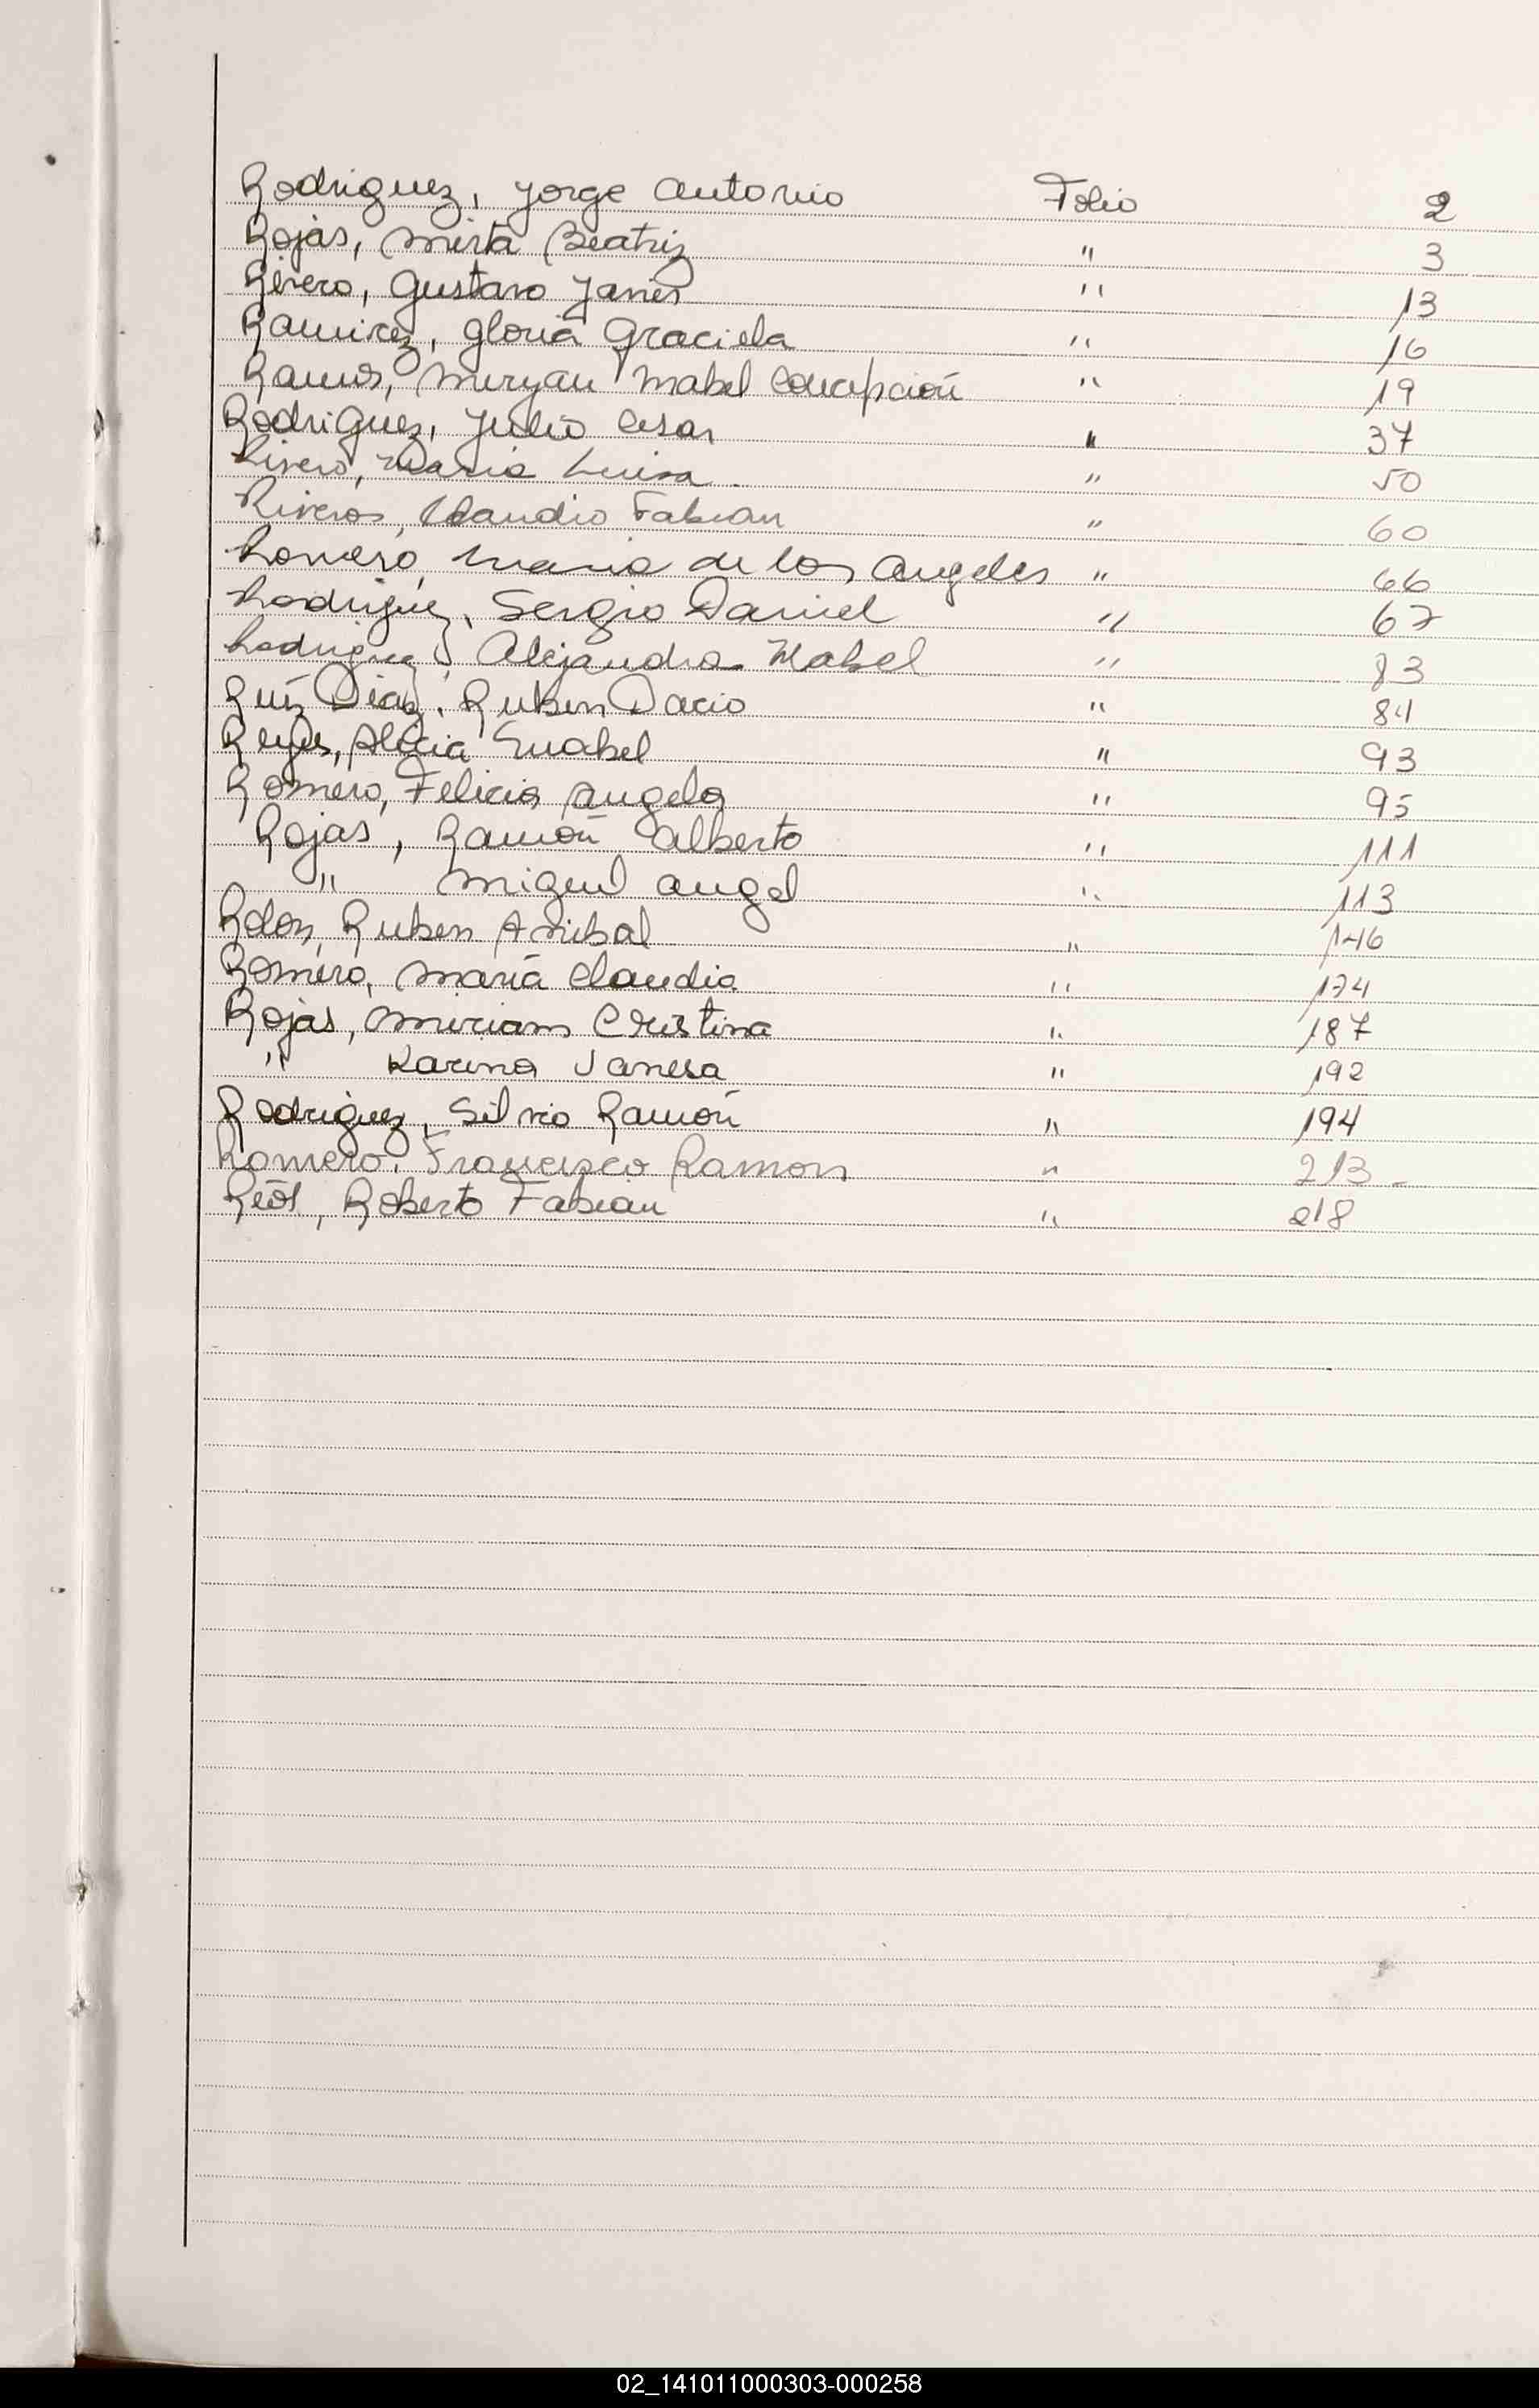 Rodriguez, Jorge Antonio Folio 2
Rojas, Mirta Beatriz " 3
Rivero, Gustavo Javier " 13
Ramirez, Gloria Graciela " 16
Ramos, Miryan Mabel Concepción " 19
Rodriguez, Julio Cesar " 37
Rivero, Maria Luisa " 50
Riveros, Claudio Fabian " 60
Romero, Maria de los Angeles " 66
Rodriguez, Sergio Daniel " 67
Rodriguez, Alejandra Mabel " 83
Ruiz Diaz, Ruben Dario " 84
Reyes, Alicia " 93
Romero, Felicia Angela " 95
Rojas, Ramón Alberto " 111
" Miguel Angel " 113
Rolon, Ruben Anibal " 146
Romero, María Claudia " 174
Rojas, Miriam Cristina " 187
" Karina Vanesa " 192
Rodriguez, Silvio Ramón " 194
Romero, Francisco Ramon " 213 -
Roberto Fabian " 218
02_141011000303-000258